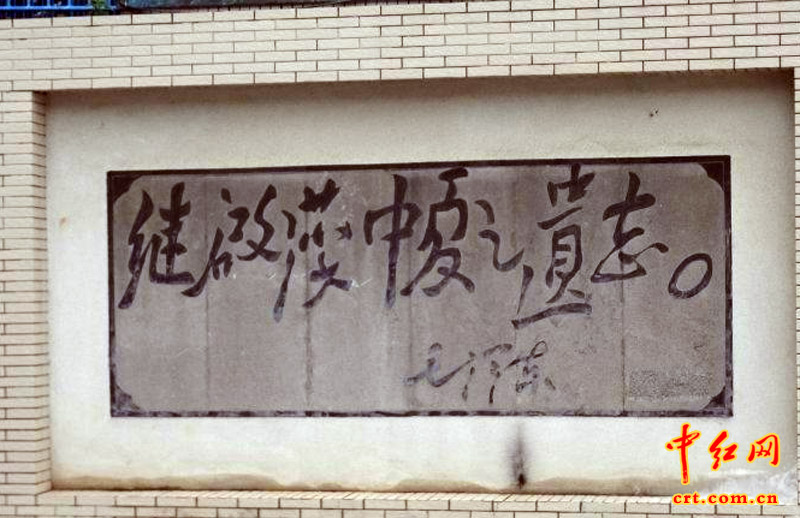 继啟漢中夏之遺志。
毛泽东
中红网
crt.com.cn